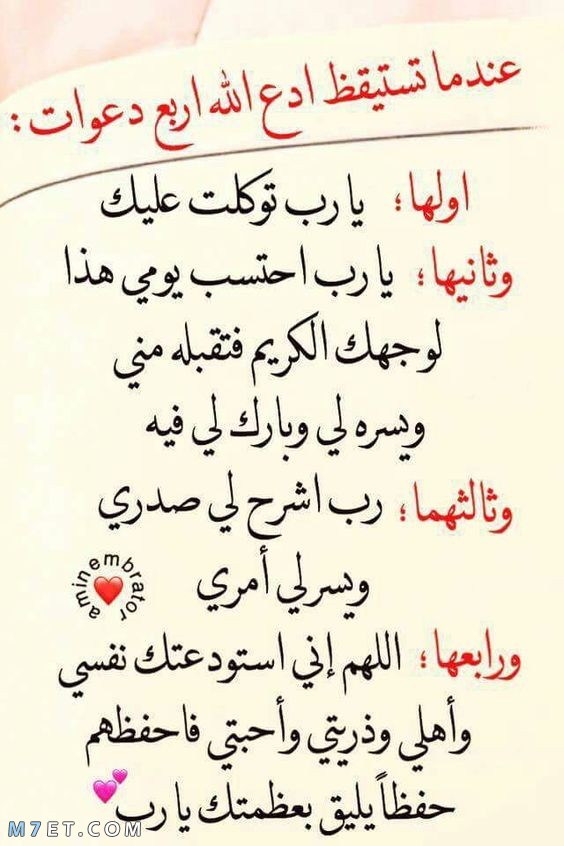 عندما تستيقظ ادع الله اربع دعوات :
اولها؛ يا رب توكلت عليك
وثانيها؛ يا رب احتسب يومي هذا
لوجهك الكريم فتقبله مني
ويسره لي وبارك لي فيه
وثالثهما؛ رب اشرح لي صدري
ويسرلي أمري
aminembrator
ورابعها؛ اللهم إني استودعتك نفسي
وأهلي وذريتي وأحبتي فاحفظهم
حفظاً يليق بعظمتك يا رب
M7ET.COM